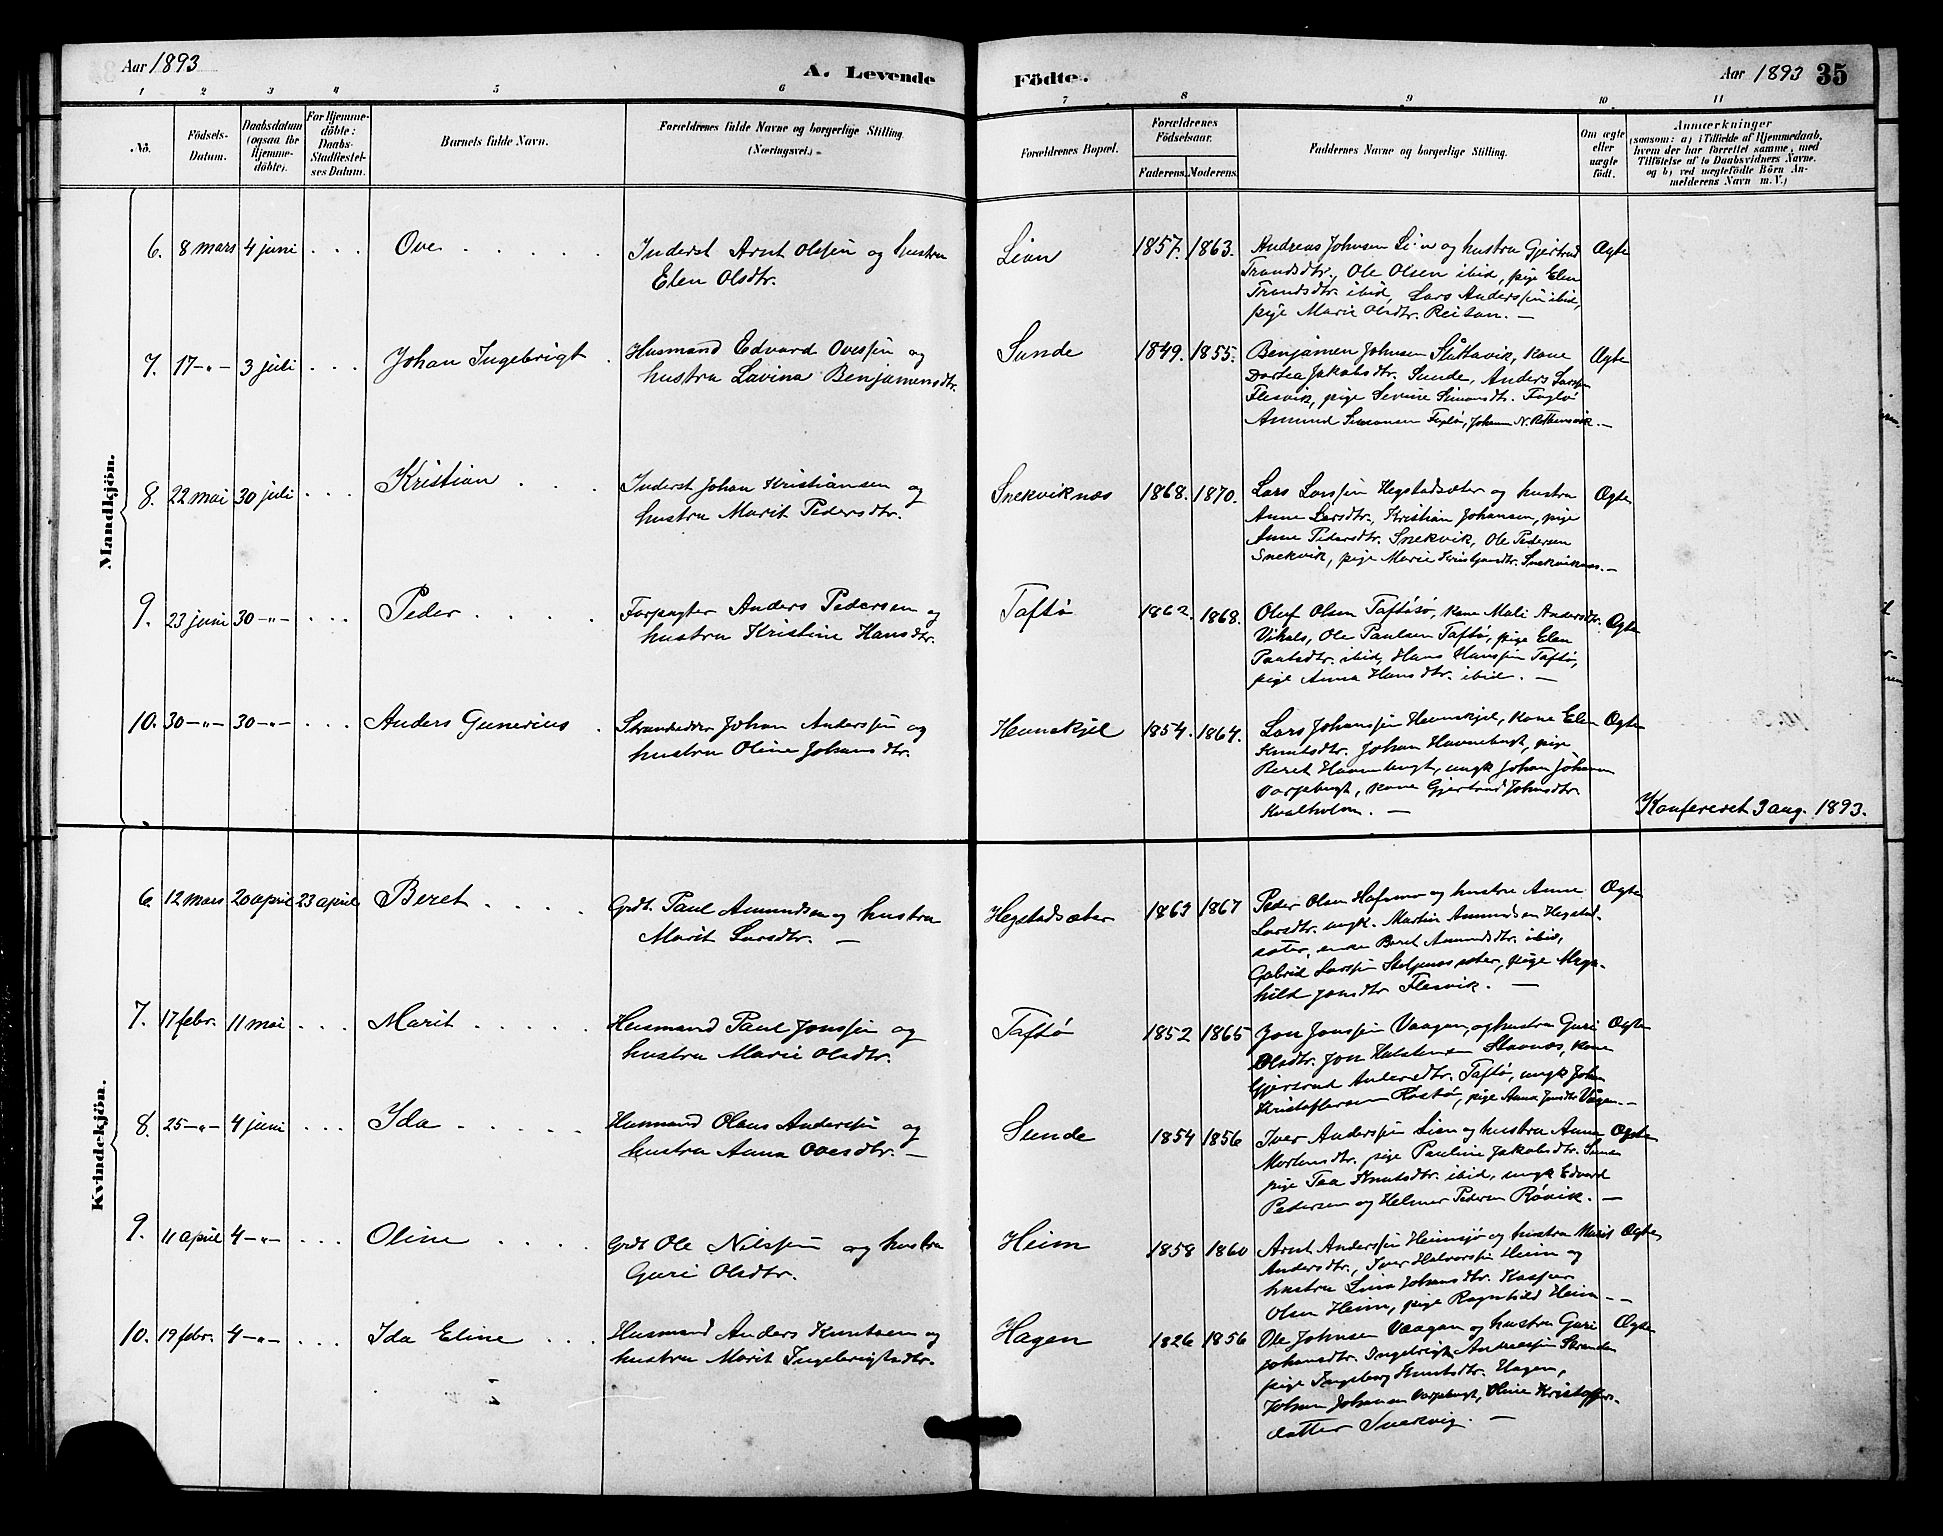 Aar 1893
A. Levende
Födte.
Aar 1893 35
1 2 3 4 5 6 7 8 9 10 11
No.
Födsels-
Datum.
Daabsdatum
(ogsaa for
Hjemme-
döbte).
For Hjemme-
döbte:
Daabs-
Stadfæstel-
ses Datum.
Barnets fulde Navn.
Forældrenes fulde Navne og borgerlige Stilling.
(Næringsvei.)
Forældrenes Bopæl.
Forældrenes
Födselsaar.
Faderens. Moderens.
Faddernes Navne og borgerlige Stilling.
Om ægte
eller
uægte
födt.
Anmærkninger
(saasom: a) i Tilfælde af Hjemmedaab,
hvem der har forrettet samme, med
Tilföielse af to Daabsvidners Navne.
og b) ved uægtefödte Börn An-
melderens Navn m. V.)
Mandkjön.
6. 8 mars 4 juni . . . Ove . . . . .
Inderst Arnt Olssen og hustru
Elen Olsdtr.
Lian 1857. 1863.
Andreas Johnsen Lian og hustru Gjertrud
Trondsdtr., Ole Olsen ibid, pige Elen
Trondsdtr. ibid, Lars Anderssen ibid,
pige Marie Olsdtr. Reitan. —
Ægte
7. 17 -"- 3 juli . . . Johan Ingebrigt .
Husmand Edvard Ovessen og
hustru Lavina Benjamensdtr.
Sunde 1849. 1855.
Benjamen Johnsen Sluttavik, kone
Dortea Jakobsdtr. Sunde, Anders Larssen
Flesvik, pige Sevine Simonsdtr.
Amund Simonsen
Ægte
8. 22 mai 30 juli . . . Kristian . . .
Inderst Johan Kristiansen og
hustru Marit Pedersdtr.
Snekviknæs 1868. 1870.
Lars Larssen Hegstadsæter og hustru
Anne Larsdtr., Kristian Johansen, pige
Anne Pedersdtr. Snekvik, Ole Pedersen
Snekvik, pige Marie Kristjansdtr. Snekviknæs. —
Ægte
9. 23 juni 30 -"- . . . Peder . . . .
Forpagter Anders Pedersen og
hustru Kristine Hansdtr.
Taftø 1862. 1868.
Oluf Olsen Taftøsø, kone Mali Andersdtr.
Vikals, Ole Paulsen Taftø, pige Elen
Paulsdtr. ibid, Hans Hanssen Taftø,
pige Anna Hansdtr. ibid. —
Ægte
10. 30 -"- 30 -"- . . . Anders Gunerius .
Strandsidder Johan Anderssen og
hustru Oline Johansdtr.
Hemskjel 1854. 1864.
Lars Johanssen Hemskjel, kone Elen
Knutsdtr. Johan Havnebugt, pige
Beret Havnbugt, ungk Johan Johansen
Vorpbugt, kone Gjertrud Johnsdtr.
Kvalholm. —
Ægte
Konfereret 3 aug. 1893.
Kvindekjön.
6. 12 mars 20 april 23 april Beret . . . .
Grdt. Paul Amundsen og hustru
Marit Larsdtr. —
Hegstadsæter 1863 1867
Peder Olsen Hafsmo og hustru Anne
Larsdtr. ungk. Martin Amundsen Hegstad-
sæter, enke Beret Amundsdtr. ibid,
Gabriel Larssen Stolpnessæter, pige Mag-
hild Jonsdtr Flesvik. —
Ægte
7. 17 febr. 11 mai . . . Marit . . . . .
Husmand Paul Jonssen og
hustru Marie Olsdtr.
Taftø 1852 1865
Jon Jonssen Vaagan, og hustru Guri
Olsdtr. Jon Halstensen Stavnæs, kone
Gjertrud Andersdtr. Taftø, ungk Johan
Kristoffersen Rostø, pige Anna Jonsdtr Vågan. —
Ægte
8. 25 -"- 4 juni . . . Ida . . . . .
Husmand Olaus Anderssen og
hustru Anna Ovesdtr. —
Sunde 1854 1856
Iver Anderssen Lian og hustru Anne
Mortensdtr. pige Pauline Jakobsdtr. Sunde
pige Tea Knutsdtr. ibid, ungk Edvard
Pedersen og Helmer Pedersen Røvik. —
Ægte
9. 11 april 4 -"- . . . Oline . . . .
Grdt Ole Nilssen og hustru
Guri Olsdtr.
Heim 1858 1860
Arnt Anderssen Heimsjø og hustru Marit
Andersdtr., Iver Halvorssen Heim og
hustru Lina Johansdtr. Kasper
Olsen Heim, pige Ragnhild Heim —
Ægte
10. 19 febr. 4 -"- . . . Ida Eline . . .
Husmand Anders Knutsen og
hustru Marit Ingebrigtsdtr.
Hagen 1826 1856
Ole Johnsen Vaagan og hustru Guri
Johansdtr. Ingebrigt Andreassen Stranden
pige Ingeborg Knutsdtr. Hagen,
Johan Johansen Vorpbugt, Oline Kristoffers-
datter Snekvig. —
Ægte